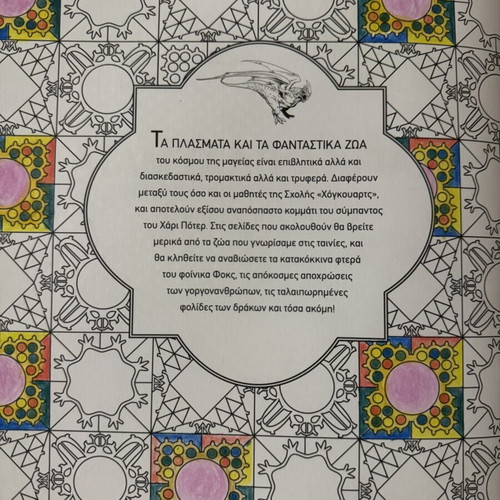 ΤΑ ΠΛΑΣΜΑΤΑ ΚΑΙ ΤΑ ΦΑΝΤΑΣΤΙΚΑ ΖΩΑ
του κόσμου της μαγείας είναι επιβλητικά αλλά και
διασκεδαστικά, τρομακτικά αλλά και τρυφερά. Διαφέρουν
μεταξύ τους όσο και οι μαθητές της Σχολής «Χόγκουαρτς»,
και αποτελούν εξίσου αναπόσπαστο κομμάτι του σύμπαντος
του Χάρι Πότερ. Στις σελίδες που ακολουθούν θα βρείτε
μερικά από τα ζώα που γνωρίσαμε στις ταινίες, και
θα κληθείτε να αναβιώσετε τα κατακόκκινα φτερά
του φοίνικα Φοκς, τις απόκοσμες αποχρώσεις
των γοργονανθρώπων, τις ταλαιπωρημένες
φολίδες των δράκων και τόσα ακόμη!